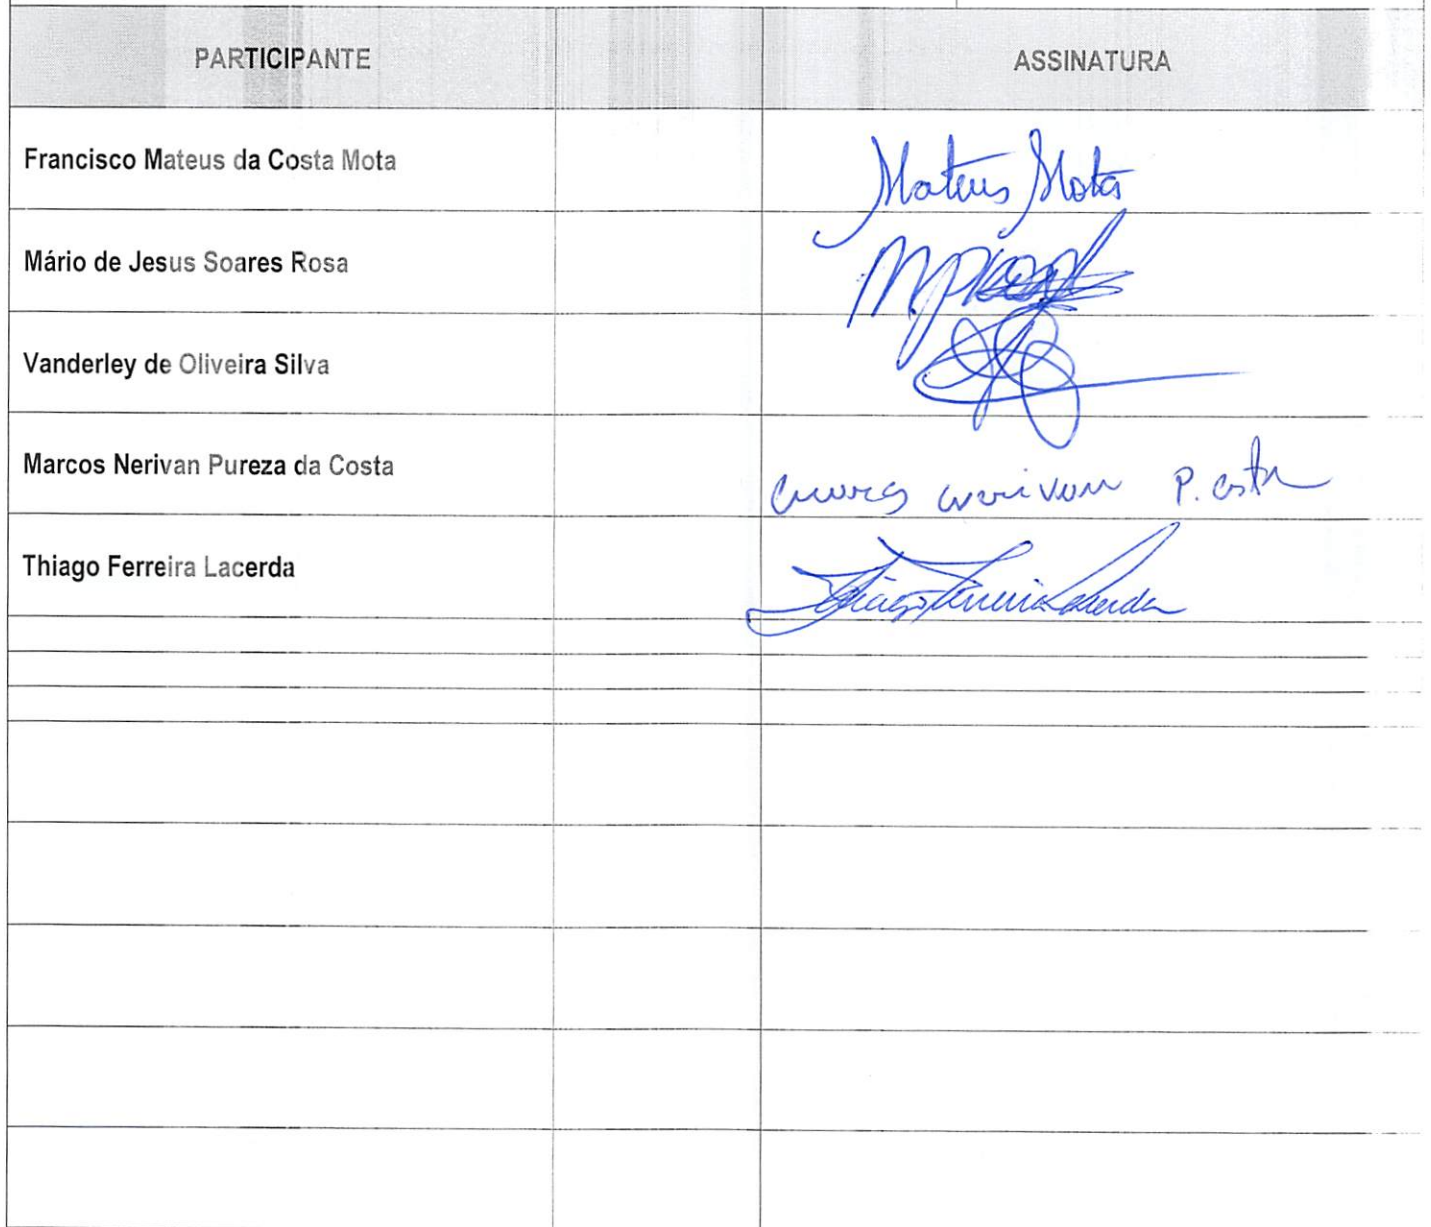 PARTICIPANTE ASSINATURA
Francisco Mateus da Costa Mota Mateus Mota
Mário de Jesus Soares Rosa
Vanderley de Oliveira Silva
Marcos Nerivan Pureza da Costa P. Costa
Thiago Ferreira Lacerda Thiago Ferreira Lacerda